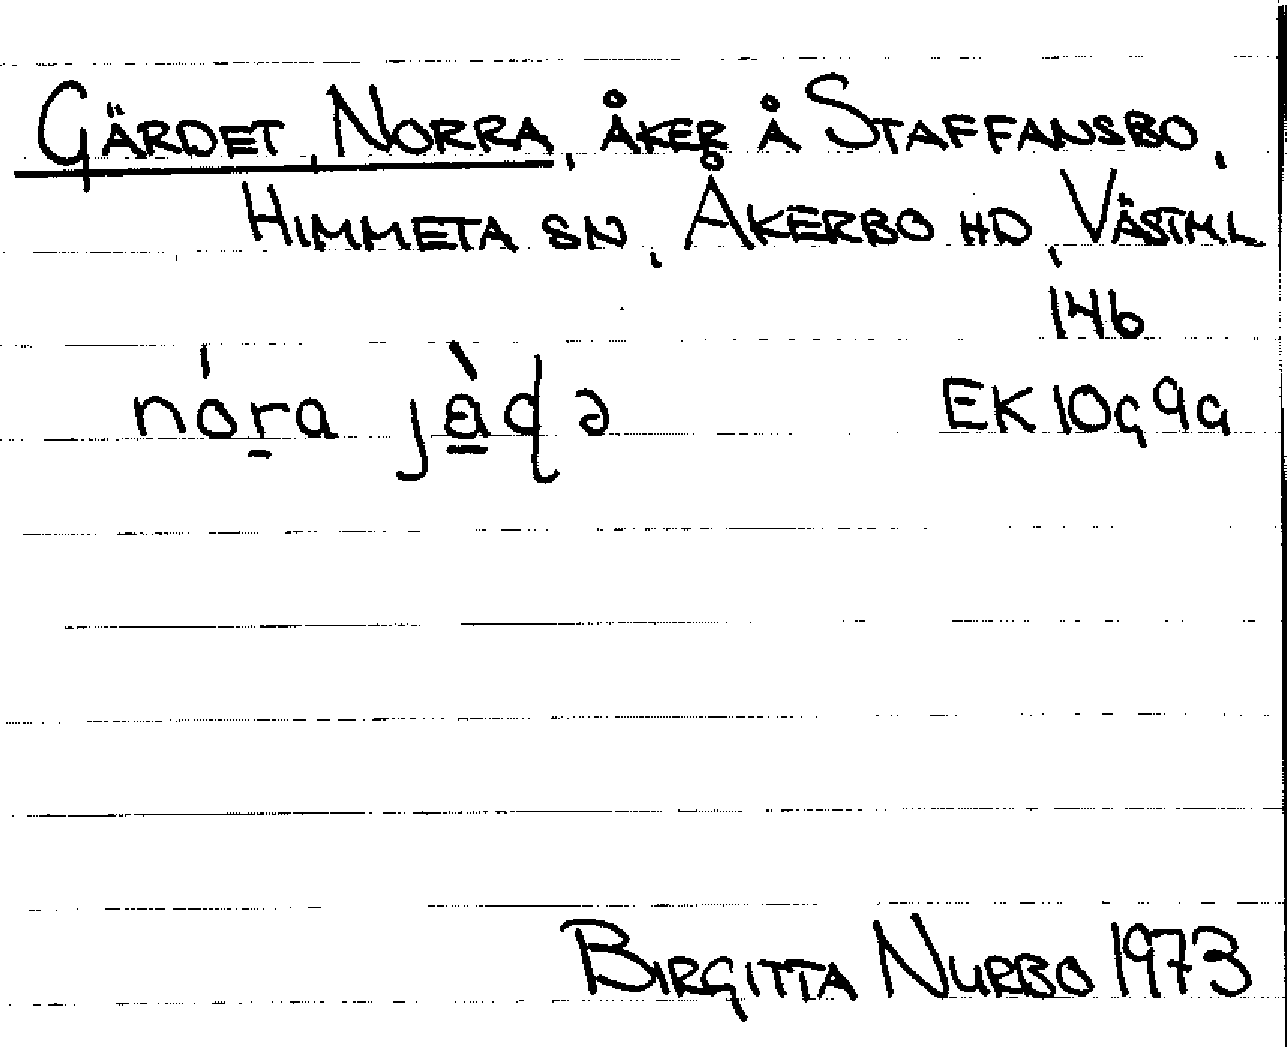 Gärdet, Norra, åker å Staffansbo,
Himmeta sn, Åkerbo hd, Västml
146
nóra jàɖə
EK 10G9a
Birgitta Nurbo 1973